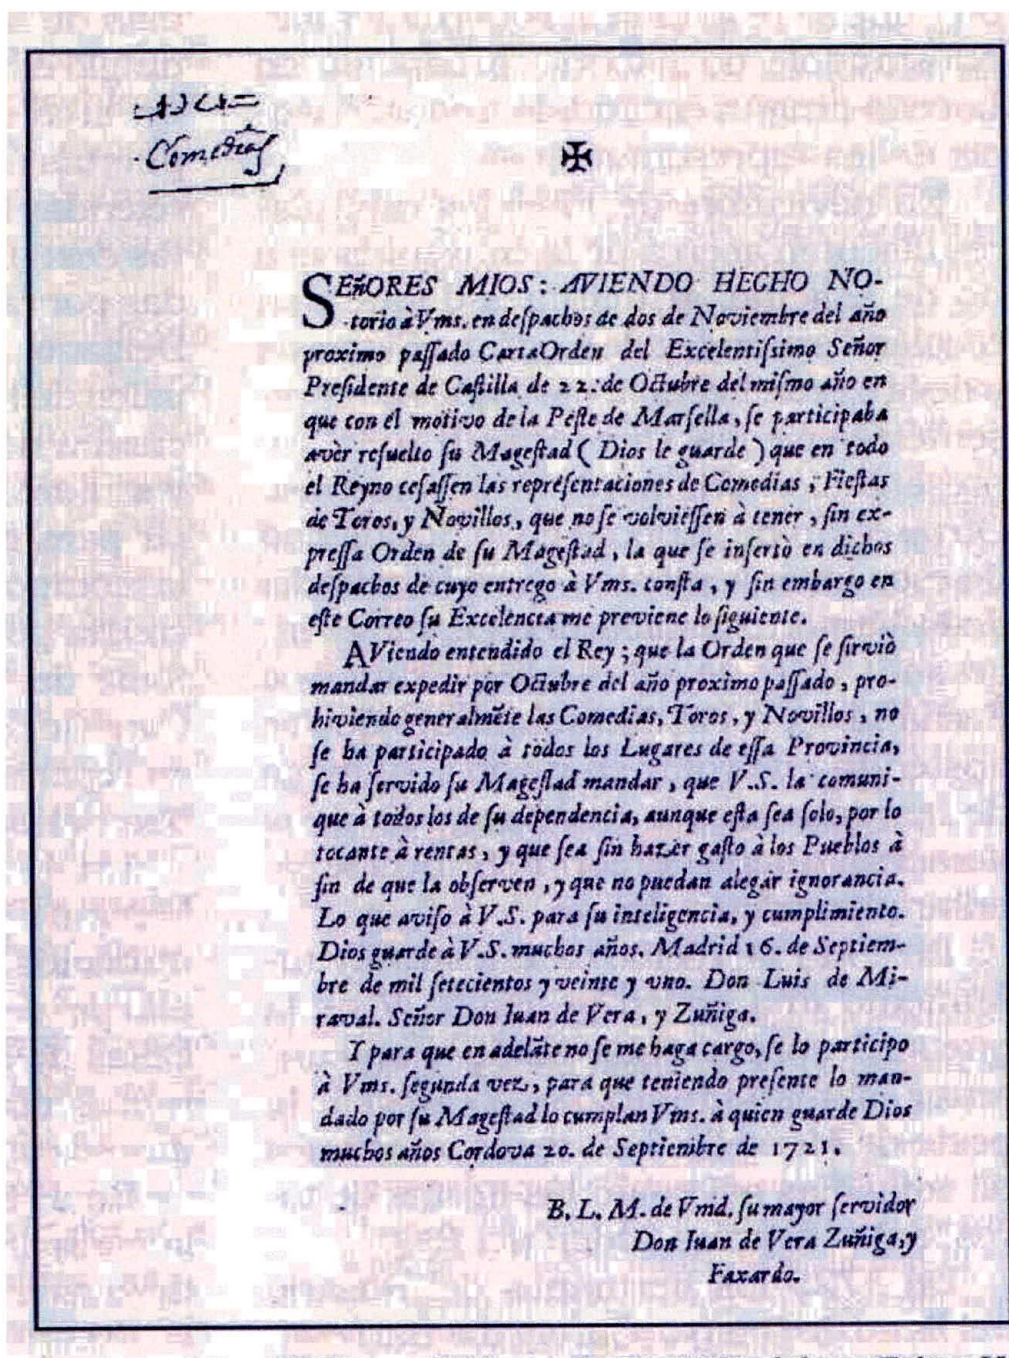 Comedias
✠
SEñORES MIOS: AVIENDO HECHO NO-
torio à Vms. en deſpachos de dos de Noviembre del año
proximo paſſado CartaOrden del Excelentiſsimo Señor
Preſidente de Caſtilla de 22. de Octubre del miſmo año en
que con el motivo de la Peſte de Marſella, ſe participaba
avèr reſuelto ſu Mageſtad ( Dios le guarde ) que en todo
el Reyno ceſaſſen las repreſentaciones de Comedias, Fieſtas
de Toros, y Novillos, que no ſe volvieſſen à tener, ſin ex-
preſſa Orden de ſu Mageſtad, la que ſe inſertò en dichos
deſpachos de cuyo entrego à Vms. conſta, y ſin embargo en
eſte Correo ſu Excelencia me previene lo ſiguiente.
AViendo entendido el Rey; que la Orden que ſe ſirviò
mandar expedir por Octubre del año proximo paſſado, pro-
hiviendo generalmẽte las Comedias, Toros, y Novillos, no
ſe ha participado à todos los Lugares de eſſa Provincia,
ſe ha ſervido ſu Mageſtad mandar, que V.S. la comuni-
que à todos los de ſu dependencia, aunque eſta ſea ſolo, por lo
tocante à rentas, y que ſea ſin hazer gaſto à los Pueblos à
fin de que la obſerven, y que no puedan alegar ignorancia.
Lo que aviſo à V.S. para ſu inteligencia, y cumplimiento.
Dios guarde à V.S. muchos años. Madrid 16. de Septiem-
bre de mil ſetecientos y veinte y vno. Don Luis de Mi-
raval. Señor Don Iuan de Vera, y Zuñiga.
Y para que en adelãte no ſe me haga cargo, ſe lo participo
à Vms. ſegunda vez, para que teniendo preſente lo man-
dado por ſu Mageſtad lo cumplan Vms. à quien guarde Dios
muchos años Cordova 20. de Septiembre de 1721.
B. L. M. de Vmd. ſu mayor ſervidor
Don Iuan de Vera Zuñiga, y
Faxardo.